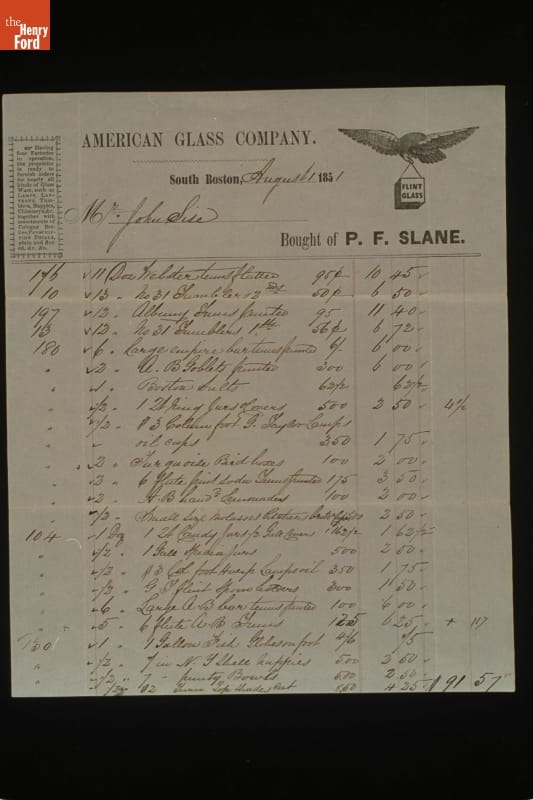 the
Henry
Ford
AMERICAN GLASS COMPANY.
South Boston, August 1 1851
Having
four Factories
in operation,
the proprietor
is ready to
furnish orders
for nearly all
kinds of Glass
Ware, such as
together with
assortments of
Cologne Bot-
FLINT
GLASS
Mr. John Sise
Bought of P. F. SLANE.
176 11 Doz Webster tums fluted 95¢ 10 45
10 13 " No 31 Tumblers 2nd 50¢ 6 50
197 12 " Albany Tums fluted 95 11 40
13 12 " No 31 Tumblers 56¢ 6 72
180 6 " Large empire bar tums fluted 6/ 6 00
" 2 " A. B Goblets fluted 300 6 00
" 1 " Boston Salts 62½ 62½
" ½ " 1 lb Ring Jars & Covers 500 2 50 4%
" ½ " # 3 Column foot G. Taylor Lamps
" oil caps 350 1 75
" 2 " Turquoise Bird boxes 100 2 00
" 2 " 6 flute pint Soda Tums fluted 175 3 50
" 2 " A. B hand Lemonades 100 2 00
" ½ " Small Size Molasses 500 2 50
104 1 Doz 1 lb Candy Jars Covers 162½ 1 62½
" ½ " 1 Gall Jars 500 2 50
" ½ " # 3 Col. foot Lamps oil 350 1 75
" ½ " G. P flint Spoon holders 300 1 50
" 6 " Large A. B bar tums fluted 100 6 00
" 5 " 6 flute A. B Tums 125 6 25 + 117
180 1 " 1 Gallon Fish Globes on foot 4/6 75
" ½ " 7 in N. Y Shell nappies 500 2 50
" ½ " 7 " Bowls 500 2 50
" ½ " Shades Cut 850 4 25 $91 57